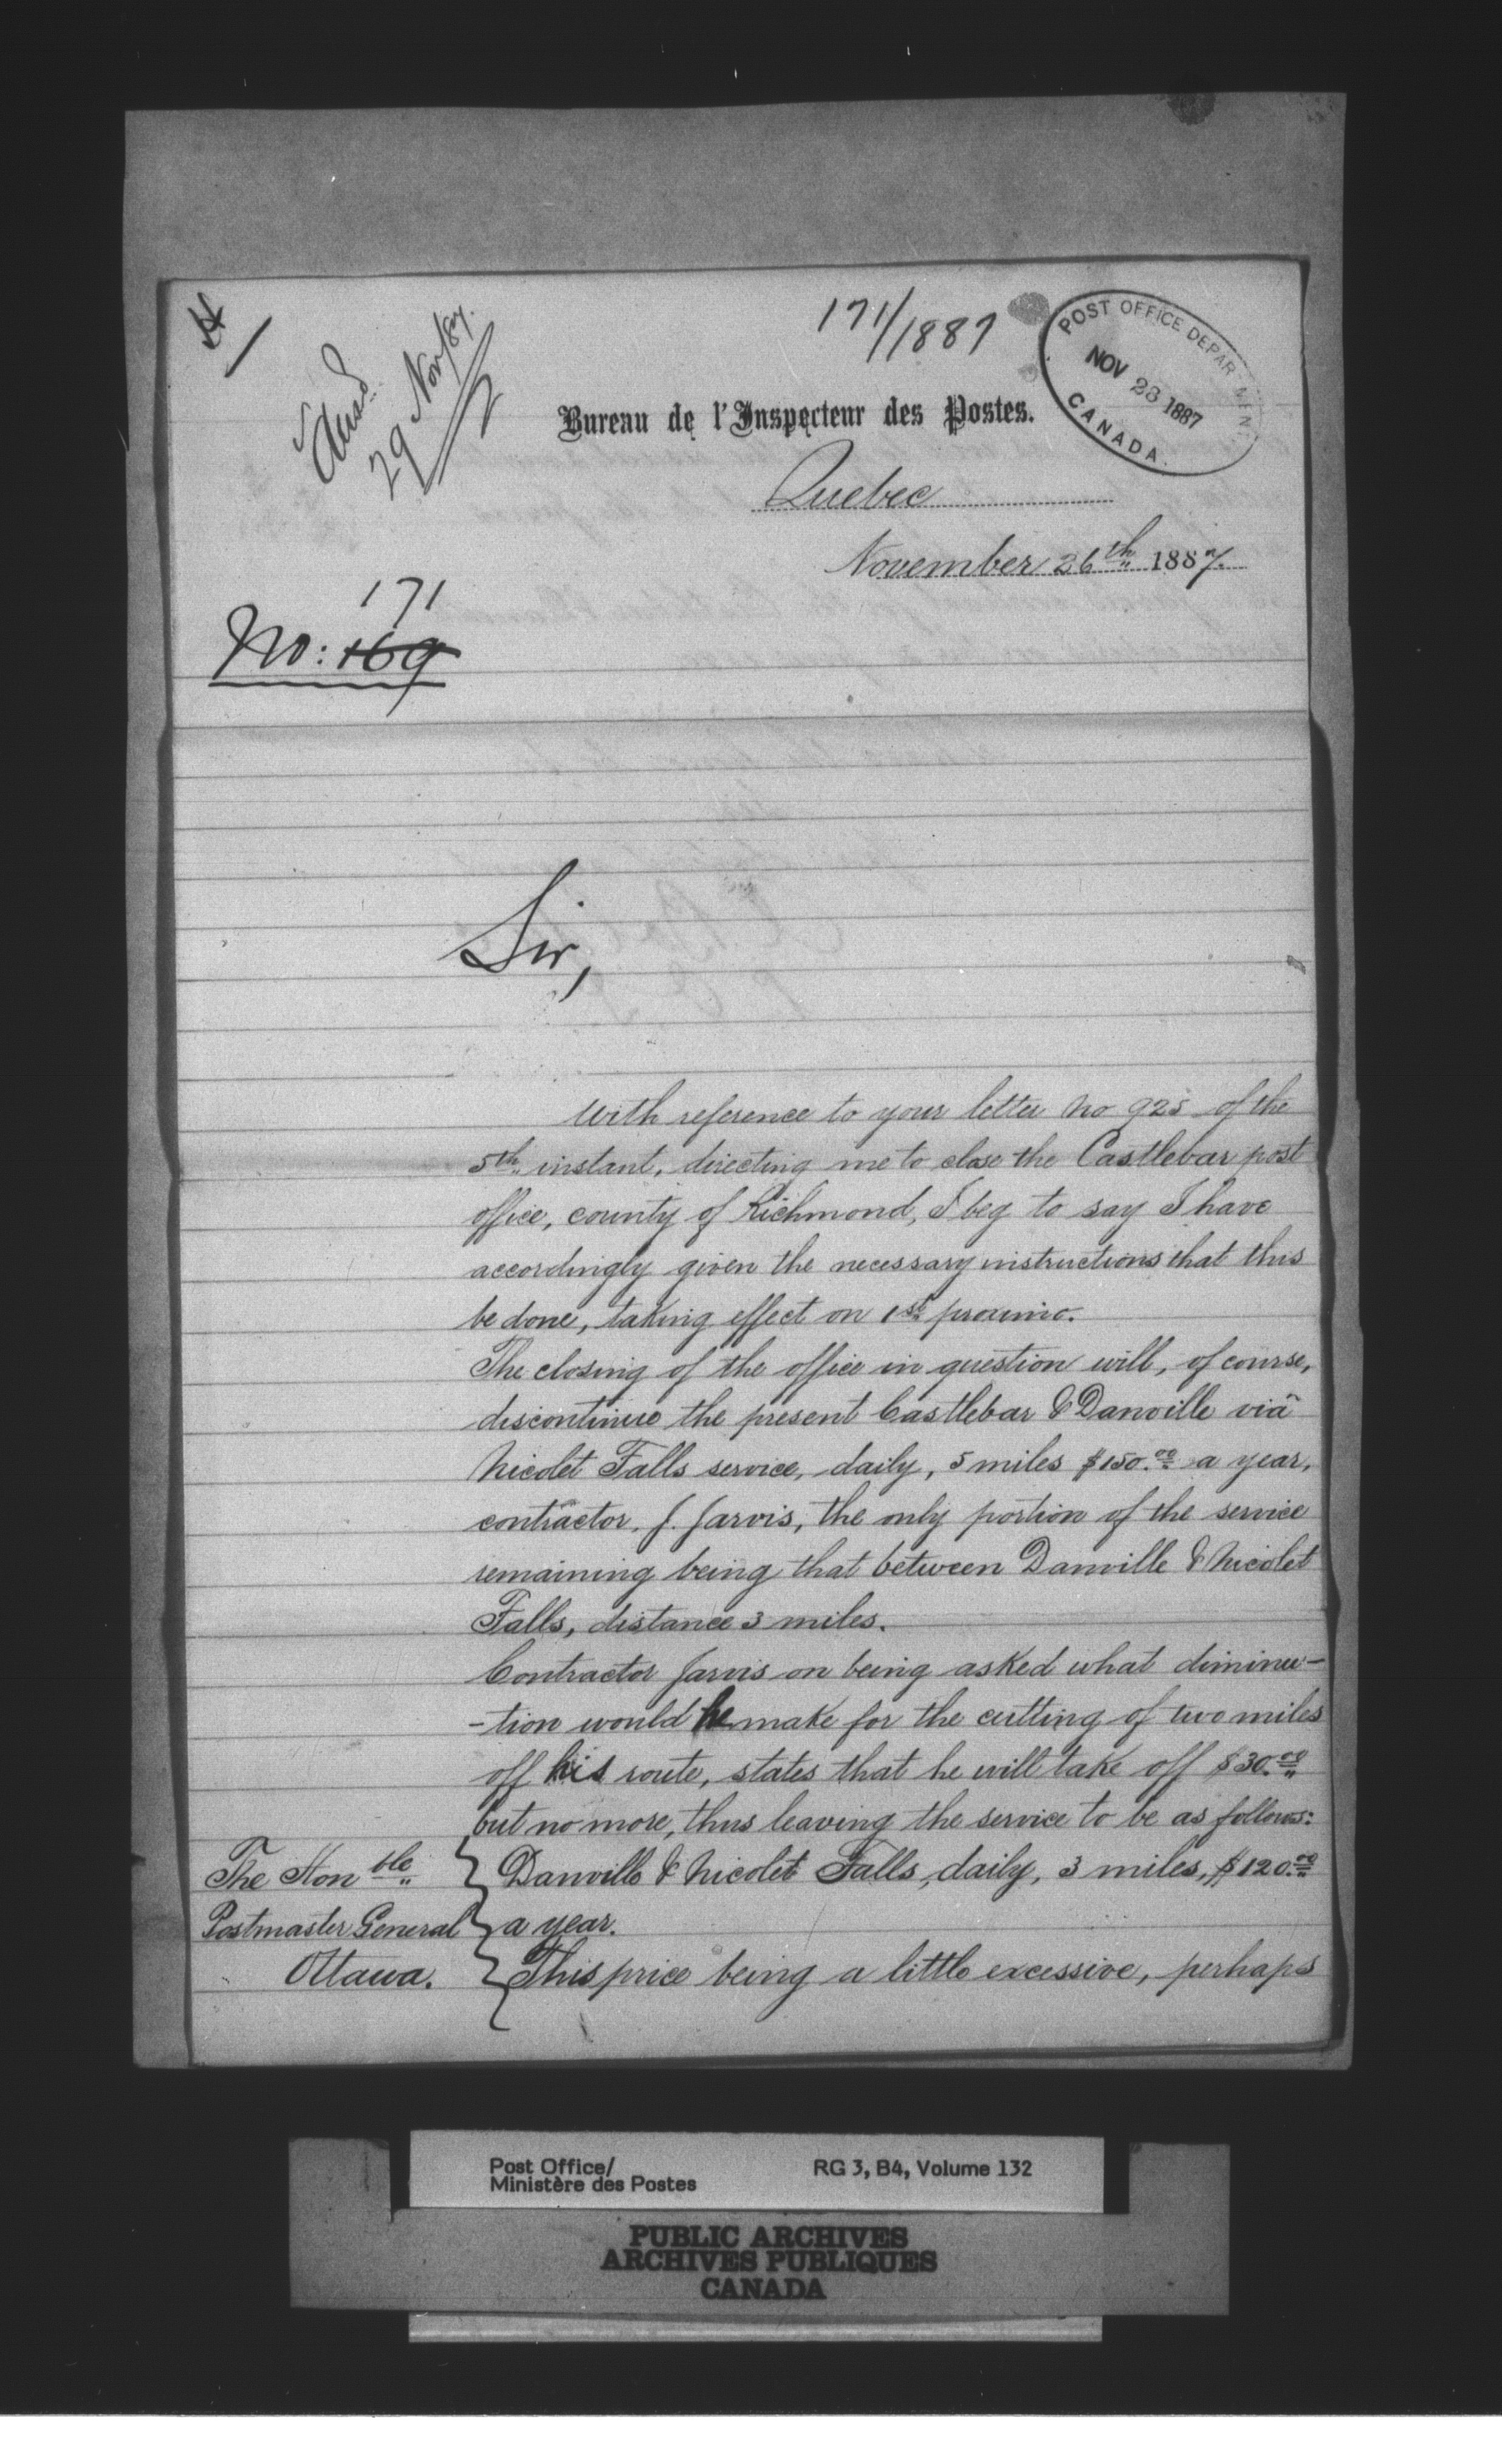 171/1887
POST OFFICE DEPARTMENT
NOV 28 1887
CANADA.
Ansd.
29 Nov/87.
Bureau de l'Inspecteur des Postes.
Quebec
November 26th 1887.
171
No: 169
Sir,
With reference to your letter No 925 of the
5th instant, directing me to close the Castlebar post
office, county of Richmond, I beg to say I have
accordingly given the necessary instructions that this
be done, taking effect on 1st proximo.
The closing of the office in question will, of course,
discontinue the present Castlebar & Danville viâ
Nicolet Falls service, daily, 5 miles $150.00 a year,
contractor, J. Jarvis, the only portion of the service
remaining being that between Danville & Nicolet
Falls, distance 3 miles.
Contractor Jarvis on being asked what diminu-
-tion would he make for the cutting of two miles
off his route, states that he will take off $30.00
but no more, thus leaving the service to be as follows:
Danville & Nicolet Falls, daily, 3 miles, $120.00
a year.
This price being a little excessive, perhaps
The Honble
Postmaster General
Ottawa.
Post Office/
Ministère des Postes
RG 3, B4, Volume 132
PUBLIC ARCHIVES
ARCHIVES PUBLIQUES
CANADA